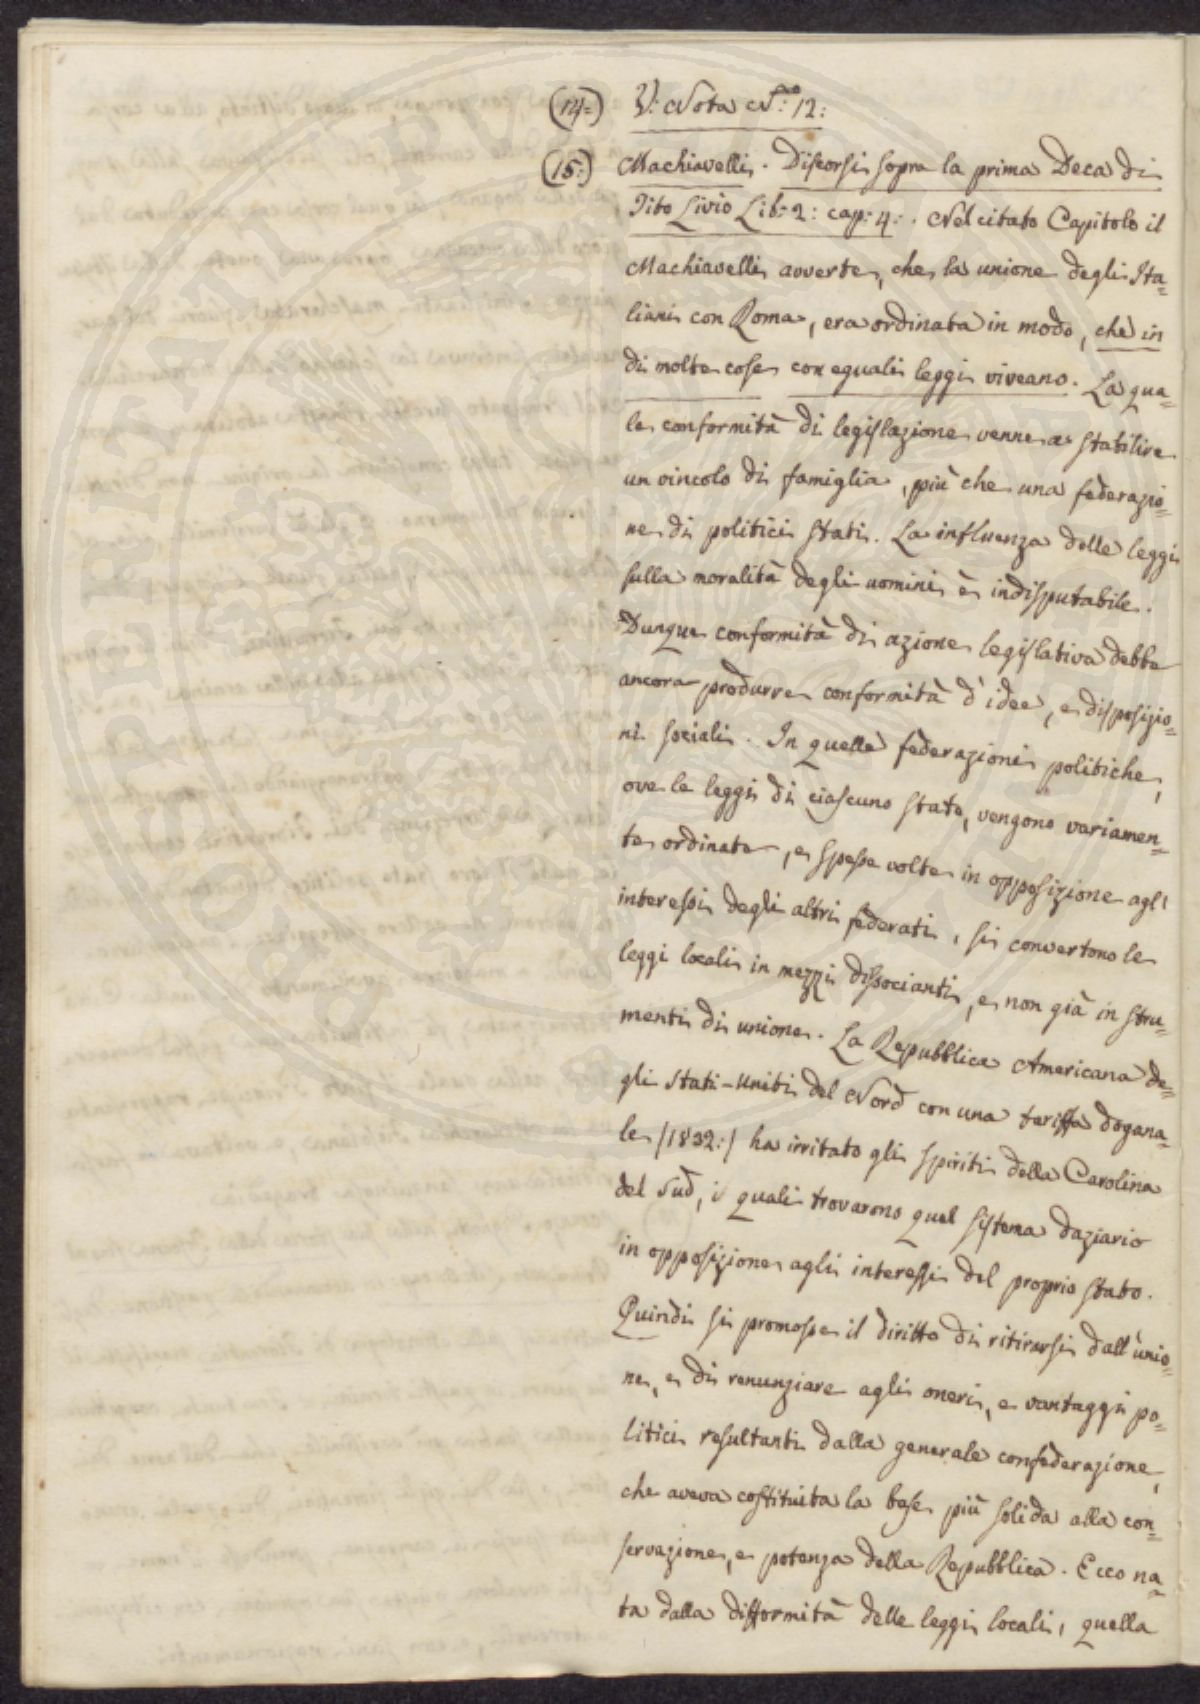 (14:) V: Nota N.º 12:
(15:) Machiavelli. Discorsi sopra la prima Deca di
Tito Livio Lib: 2: cap: 4:. Nel citato Capitolo il
Machiavelli avverte, che la unione degli Ita=
liani con Roma, era ordinata in modo, che in
di molte cose con eguali leggi viveano. La qua=
le conformità di legislazione venne a stabilire
un vincolo di famiglia, più che una federazio=
ne di politici stati. La influenza delle leggi
sulla moralità degli uomini è indisputabile.
Dunque conformità di azione legislativa debbe
ancora produrre conformità d'idee, e disposizio=
ni sociali. In quelle federazioni politiche,
ove le leggi di ciascuno stato, vengono variamen=
te ordinate, e spesse volte in opposizione agl'
interessi degli altri federati, si convertono le
leggi locali in mezzi dissocianti, e non già in stru=
menti di unione. La Repubblica Americana de=
gli Stati-Uniti del Nord con una tariffa dogana=
le /1832:/ ha irritato gli spiriti della Carolina
del Sud, i quali trovarono quel sistema daziario
in opposizione agli interessi del proprio stato.
Quindi si promosse il diritto di ritirarsi dall'unio=
ne, e di renunziare agli oneri, e vantaggi po=
litici resultanti dalla generale confederazione,
che aveva costituita la base più solida alla con=
servazione, e potenza della Repubblica. Ecco na=
ta dalla difformità delle leggi locali, quella
PROSPERITATI PUBLICAE